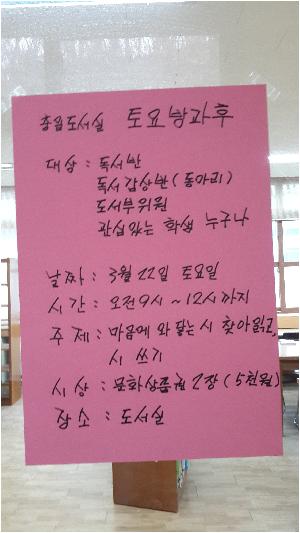 충용도서실 토요방과후
대상 : 독서반
독서감상반(동아리)
도서부위원
관심있는 학생 누구나
날짜 : 3월 22일 토요일
시간 : 오전9시 ~ 12시까지
주제 : 마음에 와 닿는 시 찾아읽고,
시 쓰기
시상 : 문화상품권 2장 (5천원)
장소 : 도서실